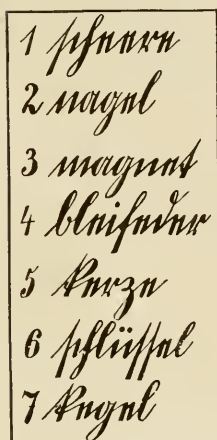 1 scheere
2 nagel
3 magnet
4 bleifeder
5 kerze
6 schlüssel
7 kegel